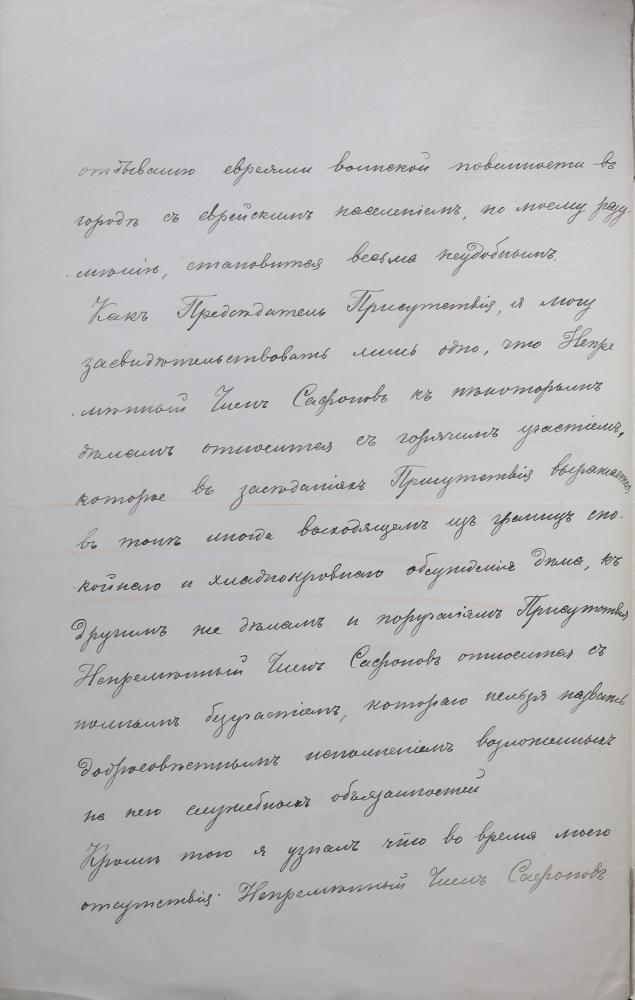 отбыванію евреями воинской повинности въ
городѣ съ еврейскимъ населеніемъ, по моему разу-
мѣнію, становится весьма неудобнымъ
Какъ Предсѣдатель Присутствія, я могу
засвидѣтельствовать лишь одно, что Непре-
мѣнный Членъ Сафроновъ къ нѣкоторымъ
дѣламъ относится съ горячимъ участіемъ,
которое въ засѣданіяхъ Присутствія выражается
въ тонѣ иногда выходящемъ изъ границъ спо-
койнаго и хладнокровнаго обсужденія дѣла, къ
другимъ же дѣламъ и порученіямъ Присутствія
Непремѣнный Членъ Сафроновъ относится съ
полнымъ безучастіемъ, котораго нельзя назвать
добросовѣстнымъ исполненіемъ возложенныхъ
на него служебныхъ обязанностей
Кромѣ того я узналъ что во время моего
отсутствія Непремѣнный Членъ Сафроновъ